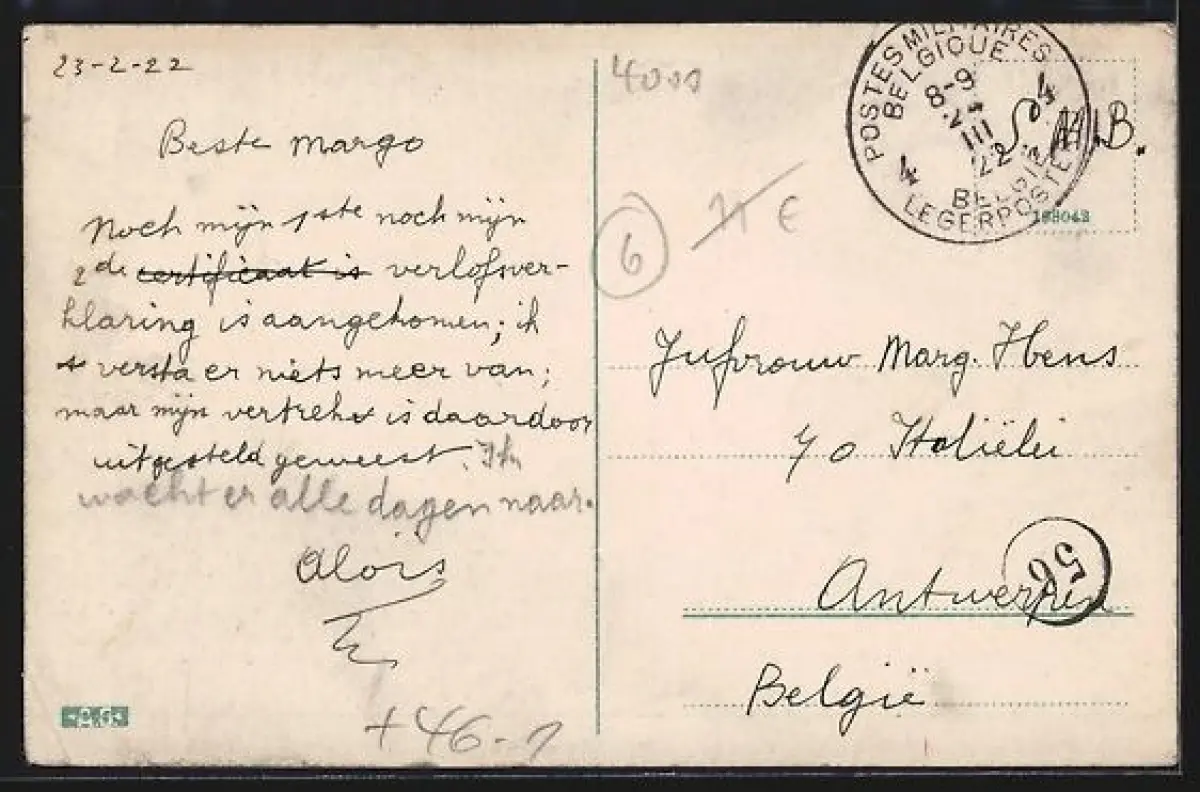 23-2-22
Beste Margo
Noch mijn 1ste noch mijn
2de certificaat is verlofsver-
klaring is aangekomen; ik
versta er niets meer van;
maar mijn vertrek is daardoor
uitgesteld geweest. Ik
wacht er alle dagen naar.
Alois
+46-1
4000
6
€
POSTES MILITAIRES
BELGIQUE
4
8-9
24
III
22
4
BELGIË
LEGERPOSTERIJ
M.B.
Jufvrouw Marg. Ibens
40 Italiëlei
Antwerpen
56
België